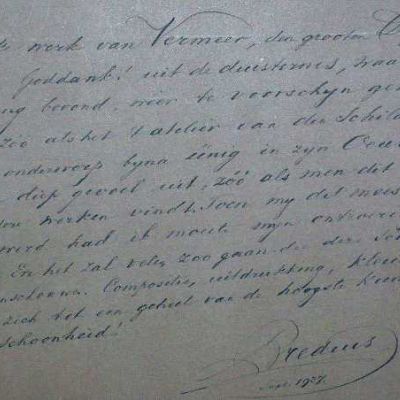 werk van Vermeer, den grooten
Goddank! uit de duisternis, waa
lang bevond, weer te voorschijn ge
zóó als het 't atelier van den Schild
onderwerp byna éénig in zyn Oeu
diep gevoel uit, zóó als men dit
dere werken vindt. Toen my dit mees
werd had ik moeite myn ontroeri
En het zal velen zoo gaan die
nschouwen. Compositie, uitdrukking, kleu
zich tot een geheel van de hoogste Kun
schoonheid!
Bredius
Sept. 1937.